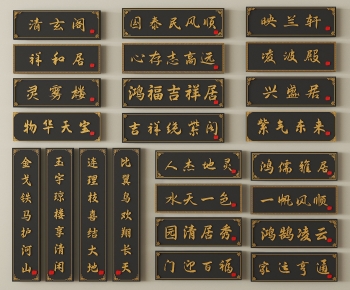 清玄阁
国泰民风顺
映兰轩
祥和居
心存志高远
凌波殿
灵雾楼
鸿福吉祥居
兴盛居
物华天宝
吉祥绕紫阁
紫气东来
金戈铁马护河山
玉宇琼楼享清闲
连理枝喜结大地
比翼鸟欢翔长天
人杰地灵
鸿儒雅居
水天一色
一帆风顺
园清居秀
鸿鹄凌云
门迎百福
亨通